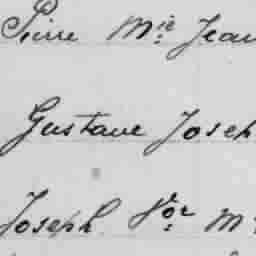 Pierre Mie Jean
Gustave Joseh
Joseph Vor M